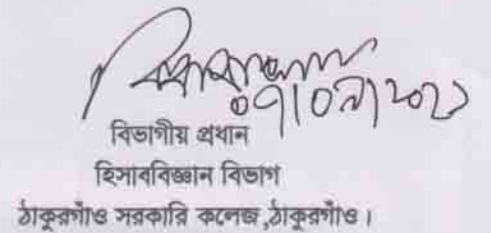 ০৭/০৯/২০২১
বিভাগীয় প্রধান
হিসাববিজ্ঞান বিভাগ
ঠাকুরগাঁও সরকারি কলেজ,ঠাকুরগাঁও।